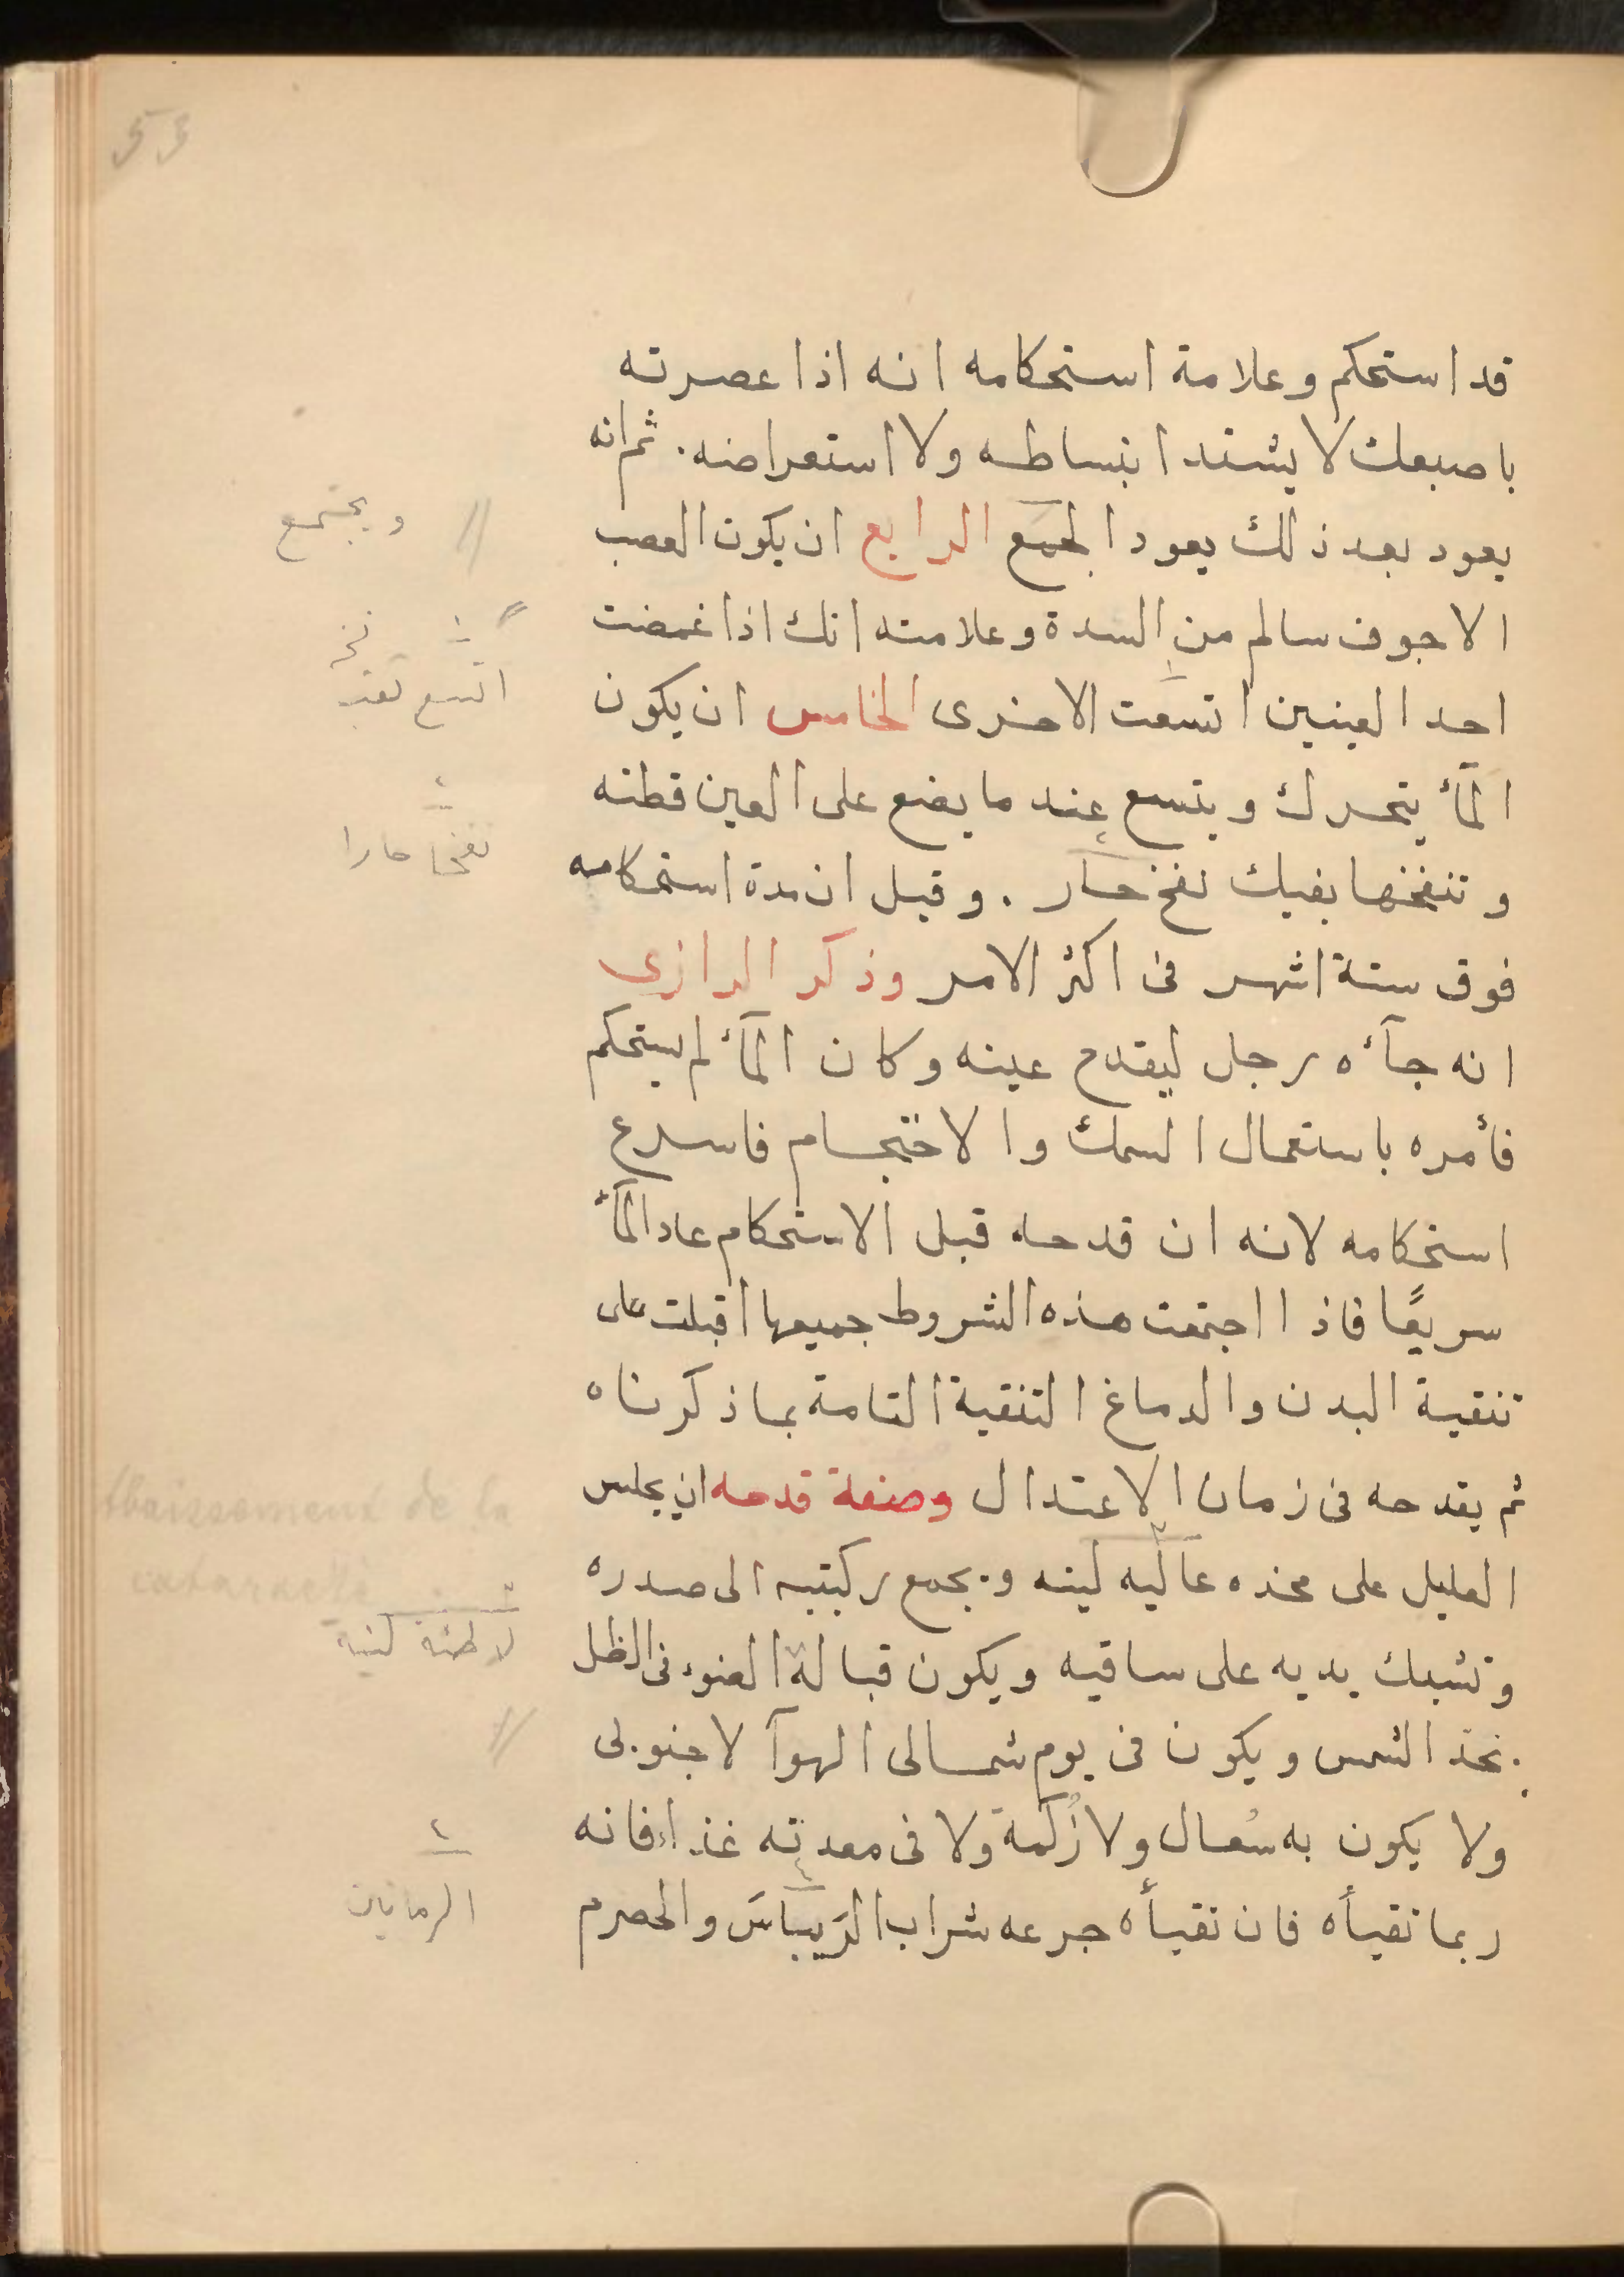 53
قد استحكم وعلامة استحكامه انه اذا عصرته
باصبعك لا يشتد انبساطه ولا استعراضه. ثم انه
يعود بعد ذلك يعود الجمع الرابع ان يكون العصب
الاجوف سالم من السدة وعلامته انك اذا غمضت
احد العينين اتسعت الاخرى الخامس ان يكون
المآء يتحرك ويتسع عند ما يضع على العين قطنه
وتنفخها بفيك نفخ حار. وقيل ان مدة استحكامه
فوق ستة اشهر فى اكثر الامر وذكر الرازى
انه جآءه رجل ليقدح عينه وكان المآء لم يستحكم
فأمره باستعمال السمك والاختجام فاسرع
استحكامه لانه ان قدحه قبل الاستحكام عاد المآء
سريعًا فاذا اجتمعت هذه الشروط جميعها اقبلت على
تنقية البدن والدماغ التنقية التامة بما ذكرناه
ثم يقدحه فى زمان الاعتدال وصفة قدحه ان يجلس
العليل على مخده عاليه لينه ويجمع ركبتيه الى صدره
وتشبك يديه على ساقيه ويكون قبالة الضوء فى الظل
بخذ الشمس ويكون فى يوم شمالى الهوآ لا جنوبى
ولا يكون به سُعال ولا زُكمة ولا فى معدته غذاء فانه
ربما تقيأه فان تقيأه جرعه شراب الرَيباسَ والحصرم
// ويجتمع
اتسع ثقب
نفخا حارا
abaissement de la
cataracte
لاطئة لينة
//
الرمانين